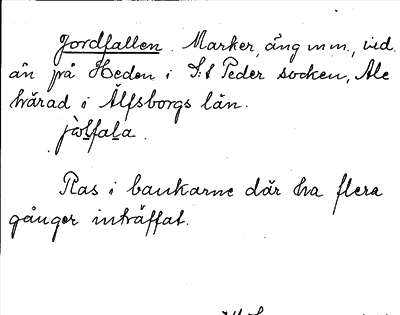 Jordfallen. Marker, äng m.m., vid
ån på Heden i S:t Peder socken, Ale
härad i Älfsborgs län.
jòlfala.
Ras i bankarne där ha flera
gånger inträffat.